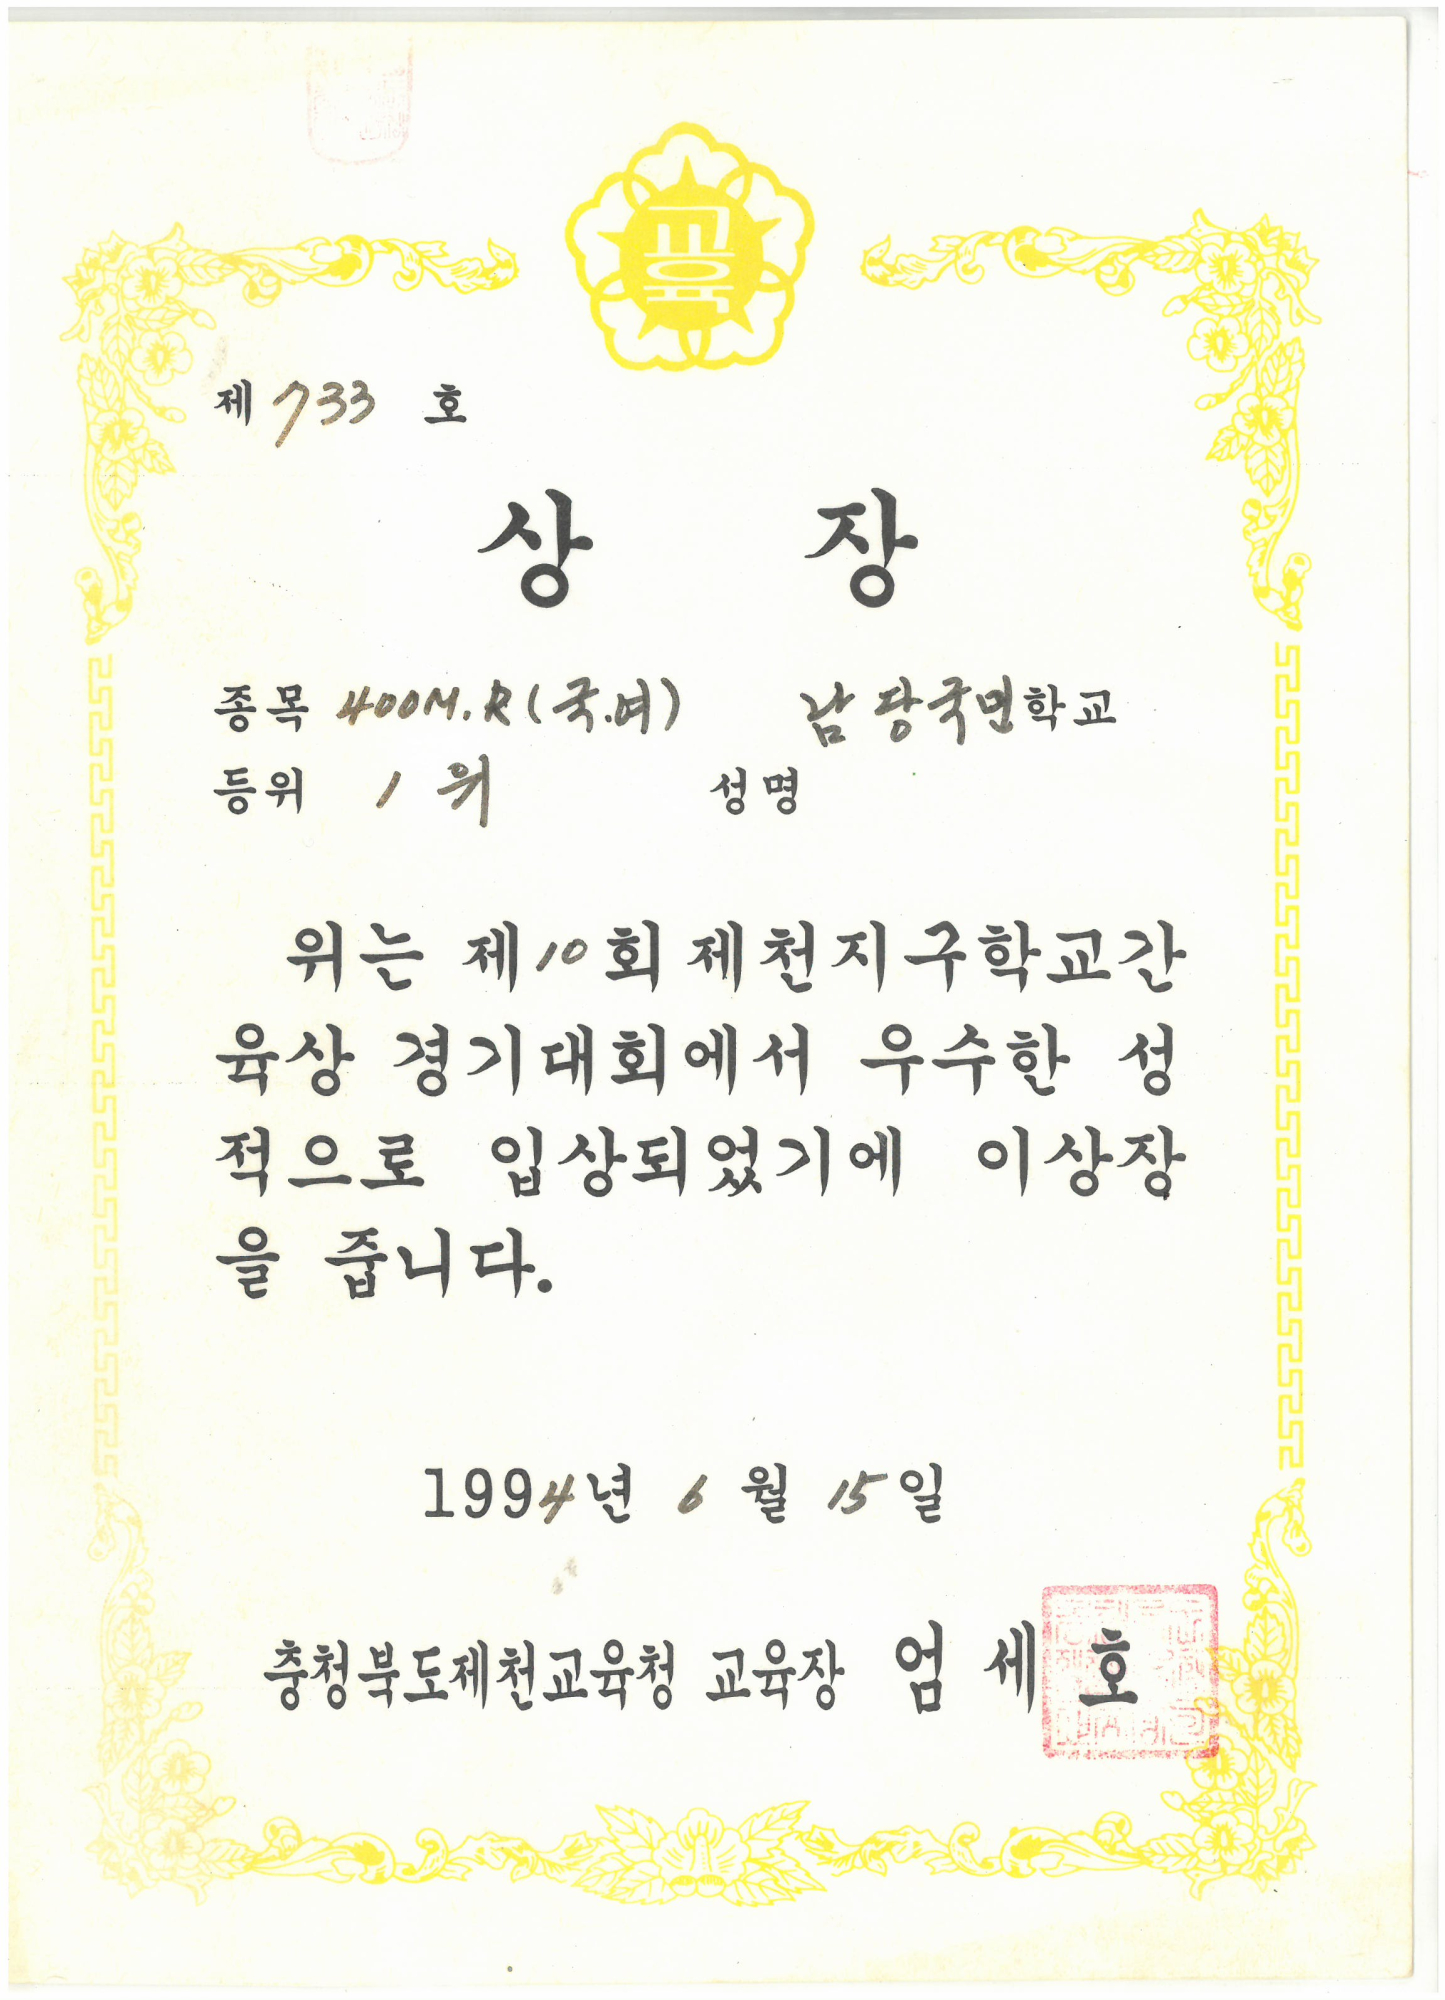 교육
제 733 호
상 장
종목 400M.R(국.여) 남당국민학교
등위 1위 성명
위는 제10회 제천지구학교간
육상 경기대회에서 우수한 성
적으로 입상되었기에 이상장
을 줍니다.
1994년 6월 15일
충청북도제천교육청 교육장 엄세호